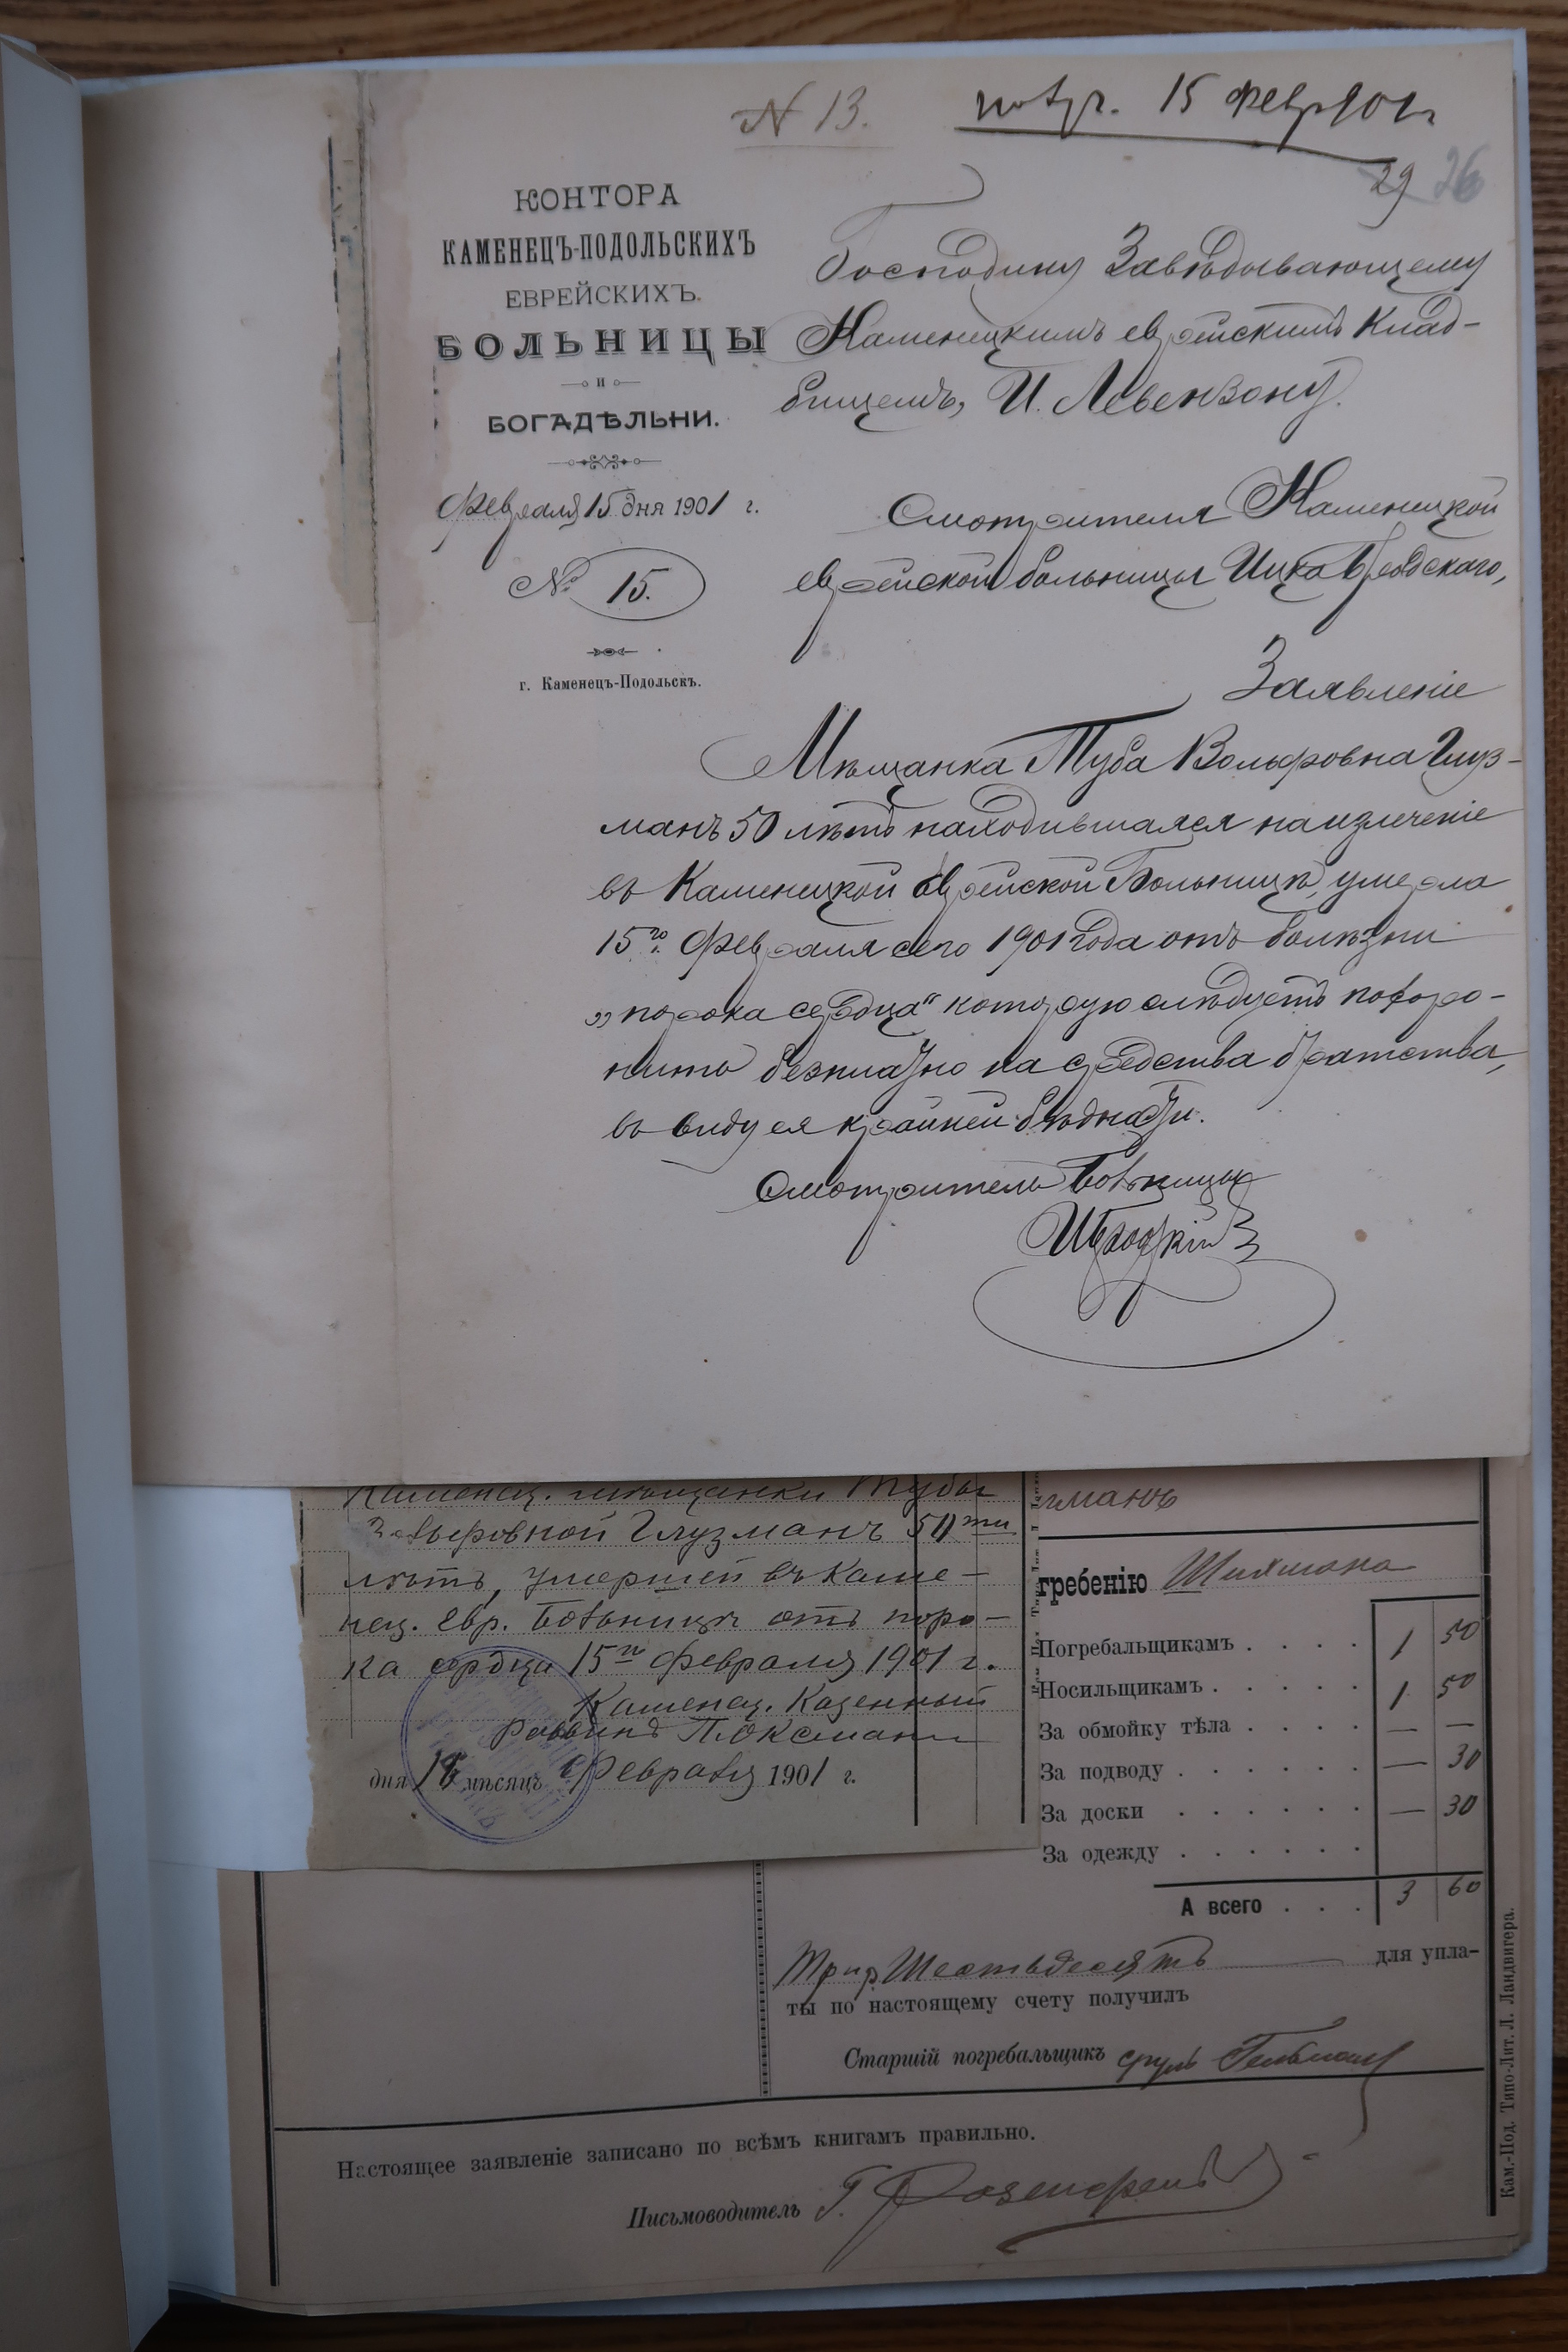 N 13.
получ. 15 февр 901 г
29 26
КОНТОРА
КАМЕНЕЦЪ-ПОДОЛЬСКИХЪ
ЕВРЕЙСКИХЪ.
БОЛЬНИЦЫ
И
БОГАДѢЛЬНИ.
Февраля 15 дня 1901 г.
№ 15.
г. Каменецъ-Подольскъ.
Господину Завѣдывающему
Каменецкимъ еврейскимъ Клад-
бищемъ, И. Левензону.
Смотрителя Каменецкой
еврейской больницы Ицка Бродскаго,
Заявленіе
Мѣщанка Туба Вольфовна Глуз-
манъ 50 лѣтъ находившаяся на излеченіе
въ Каменецкой Еврейской Больницѣ, умерла
15го Февраля сего 1901 года отъ болѣзни
„порока сердца“ которую слѣдуетъ похоро-
нить безплатно на средства братства,
въ виду ея крайней бѣдности.
Смотритель Больницы
ИБродскій
Каменец. мѣщанки Тубы
Вольфовной Глузманъ 50ти
лѣтъ, умершей въ Каме-
нец. Евр. Больницѣ отъ поро-
ка сердца 15го Февраля 1901 г.
Каменец. Казенный
Раввинъ П. Оксманъ
дня мѣсяцъ Февраля 1901 г.
гманъ
гребенію
Погребальщикамъ . . . . 1 50
Носильщикамъ . . . . . 1 50
За обмойку тѣла . . . . — —
За подводу . . . . . . — 30
За доски . . . . . . — 30
За одежду . . . . . .
А всего . . . 3 60
Три р Шестьдесятъ для упла-
ты по настоящему счету получилъ
Старшій погребальщикъ сруль
Настоящее заявленіе записано по всѣмъ книгамъ правильно.
Письмоводитель Г. Розенфельд
Кам.-Под. Типо-Лит. Л. Ландвигера.